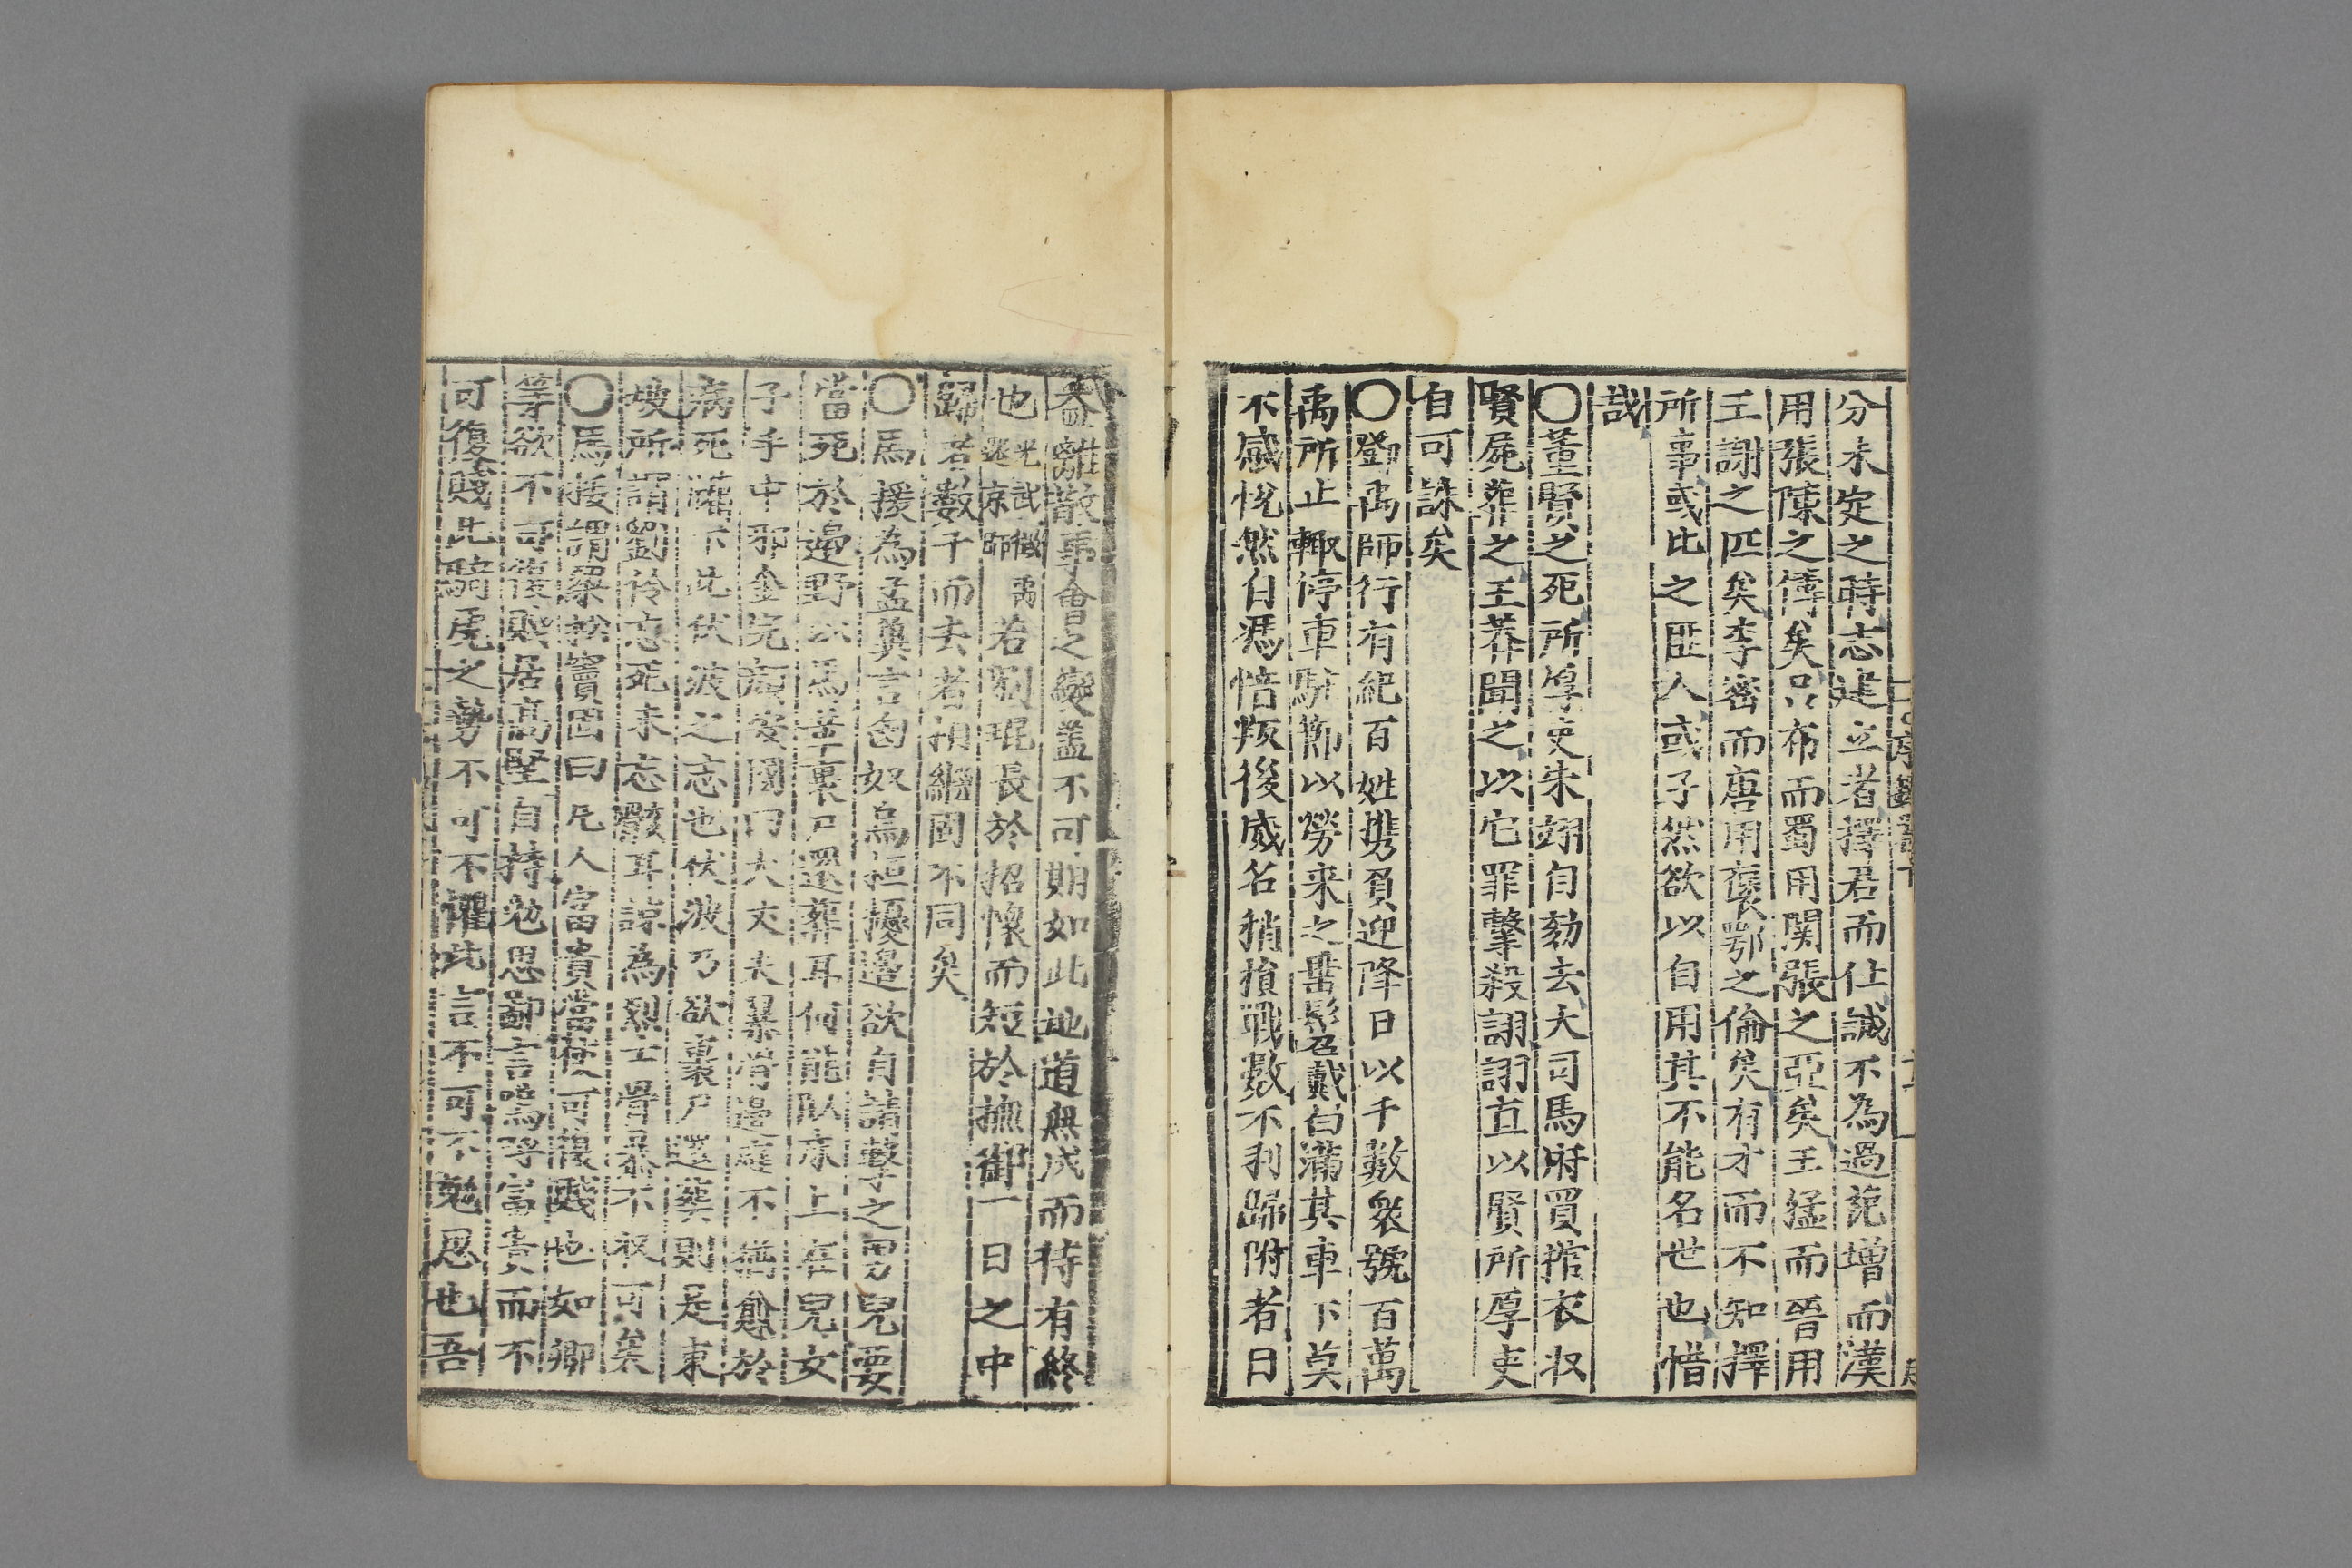 分未定之時志建立者擇君而仕誠不為過范增而漢
用張陳之儔矣呂布而蜀用関張之亞矣王猛而晉用
王謝之匹矣李密而唐用褒鄂之倫矣有才而不知擇
所事或比之匪人或孑然欲以自用其不能名世也惜
㢤
〇董賢之死所厚吏朱詡自劾去大司馬府買棺衣收
賢屍葬之王莽聞之以它罪擊殺詡詡直以賢所厚吏
自可誅矣
〇鄧禹師行有紀百姓携負迎降日以千數衆號百萬
禹所止輙停車駐節以勞来之垂髫戴白滿其車下莫
不感悅然自馮愔叛後威名稍損戰數不利歸附者日
益離散事會之變盖不可期如此地道無成而待有終
也光武徵禹還京師若劉琨長於招懷而短於撫御一日之中
歸者數千而去者相繼固不同矣
〇馬援為孟冀言匈奴烏桓擾邉欲自請擊之男兒要
當死於邉野以馬革裹尸還葬耳何能臥床上在兒女
子手中邪金完顔安國曰大丈夫暴骨邉庭不猶愈於
病死牖下此伏波之志也伏波乃欲裹尸還葬則是東
坡所謂劉伶忘死未忘骸耳諒為烈士骨暴不收可矣
〇馬援謂梁松竇固曰凡人富貴當使可復賤也如卿
等欲不可復賤居高堅自持勉思鄙言嗚呼富貴而不
可復賤此騎虎之勢不可不懼此言不可不勉思也吾